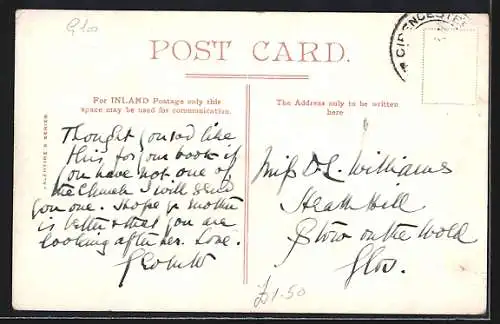 Glos
POST CARD.
CIRENCESTER
For INLAND Postage only this
space may be used for communication.
The Address only to be written
here
VALENTINE'S SERIES.
Thought you'd like
this for your book if
you have not one of
the Church I will send
you one. I hope yr mother
is better & that you are
looking after her. Love.
Miss D. L. Williams
Heath Hill
Stow on the Wold
Glos.
£1-50